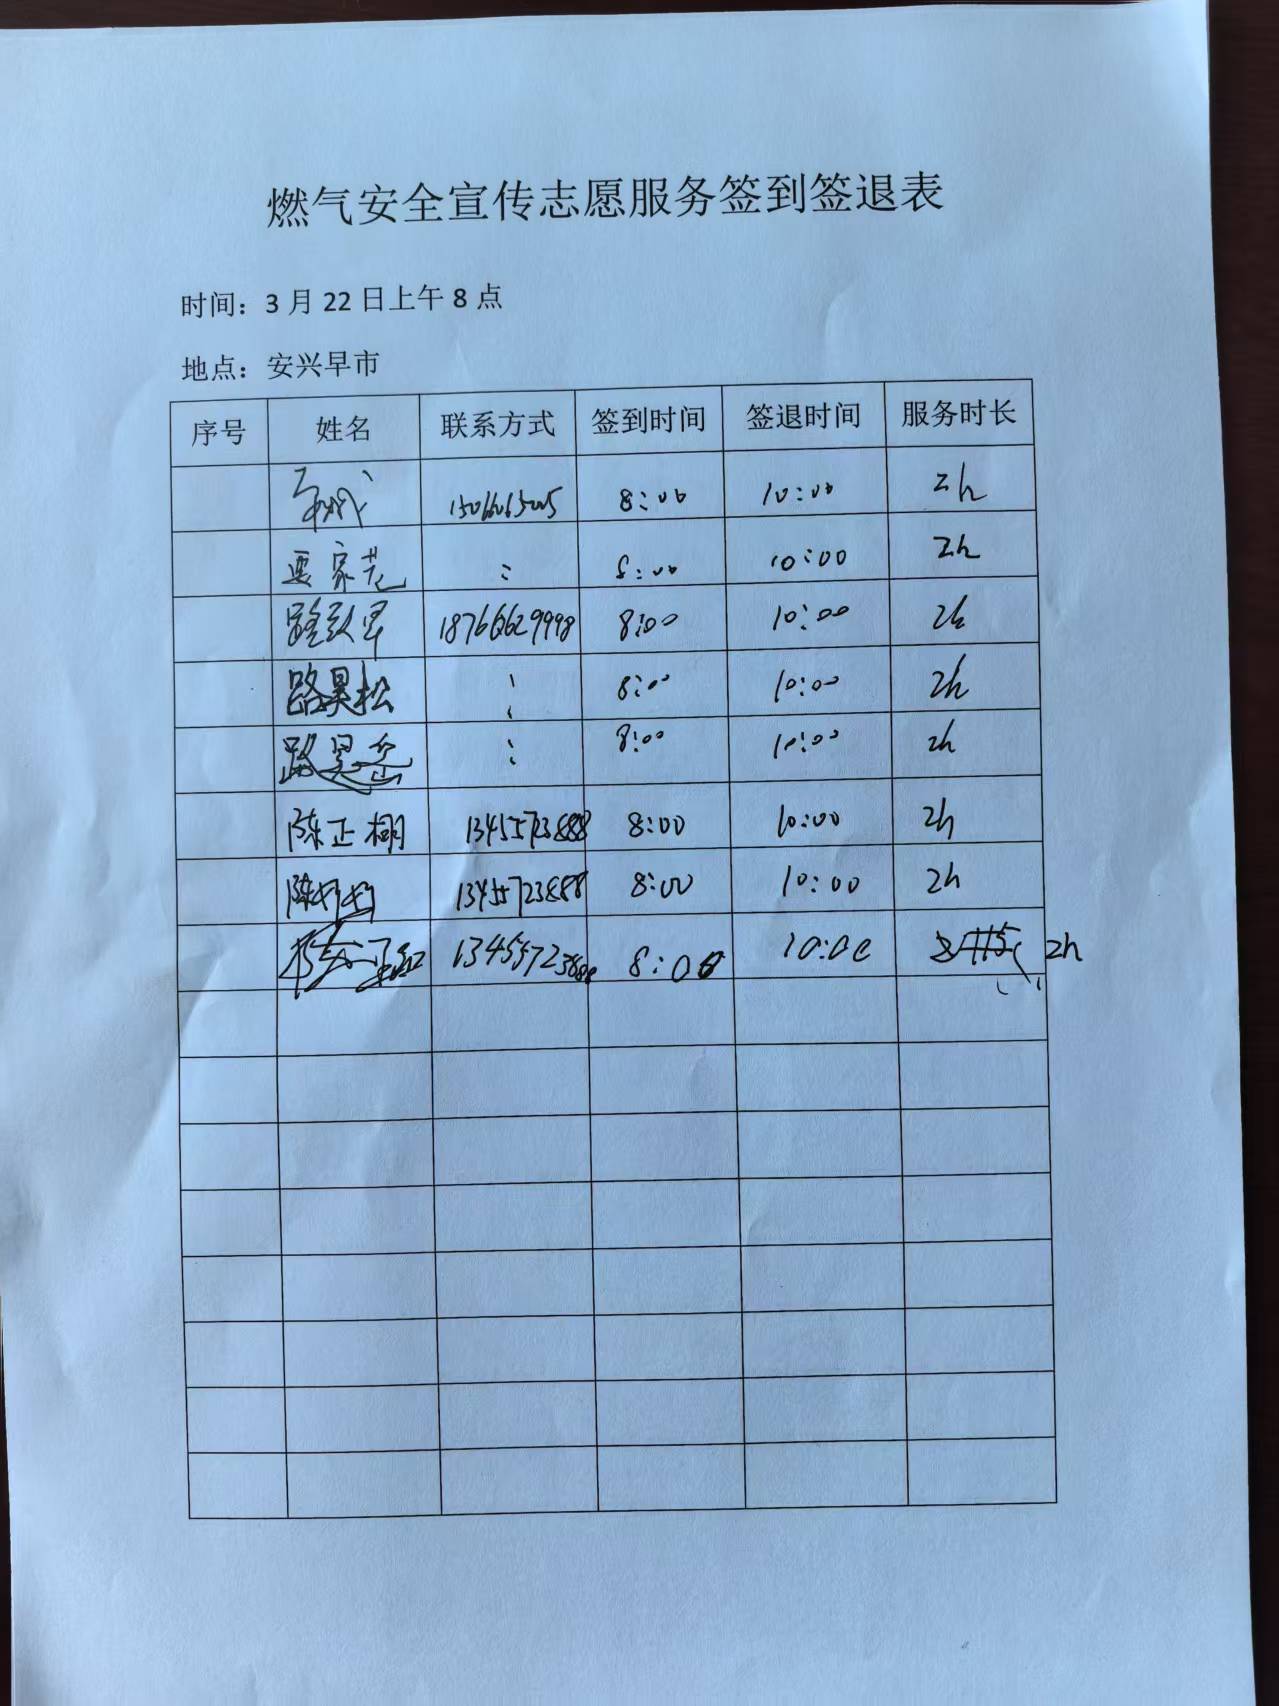 燃气安全宣传志愿服务签到签退表
时间：3月22日上午8点
地点：安兴早市
序号 姓名 联系方式 签到时间 签退时间 服务时长
8:00 10:00 2h
: 8:00 10:00 2h
18766629998 8:00 10:00 2h
路昊松 : 8:00 10:00 2h
路昊 : 8:00 10:00 2h
陈正栩 13455723888 8:00 10:00 2h
陈 13455723888 8:00 10:00 2h
13455723888 8:00 10:00 2h